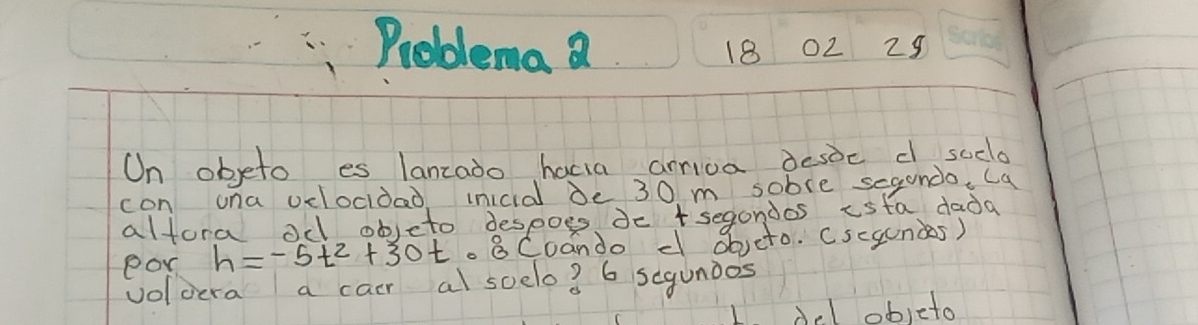 Problema 2
18 02 25
Un objeto es lanzado hacia arriva desde el suelo
con una velocidad inicial de 30 m sobre segundo. La
altura del objeto despoes de t segondos esta dada
por h=-5t²+30t. ¿Cuándo el objeto. (segundos)
volvera a caer al suelo? 6 segundos
del objeto